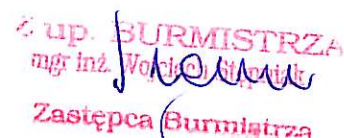 Z up. BURMISTRZA
mgr inż. Wojciech
Zastępca Burmistrza